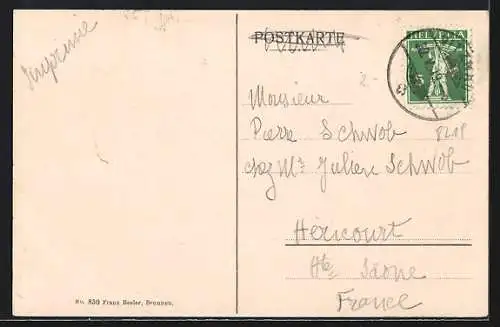 Imprimé
POSTKARTE
HELVETIA
5
2.-
Monsieur
Pierre Schwob
chez Mr Julien Schwob
Héricourt
Hte Saône
France
No. 850 Franz Besler, Brunnen.